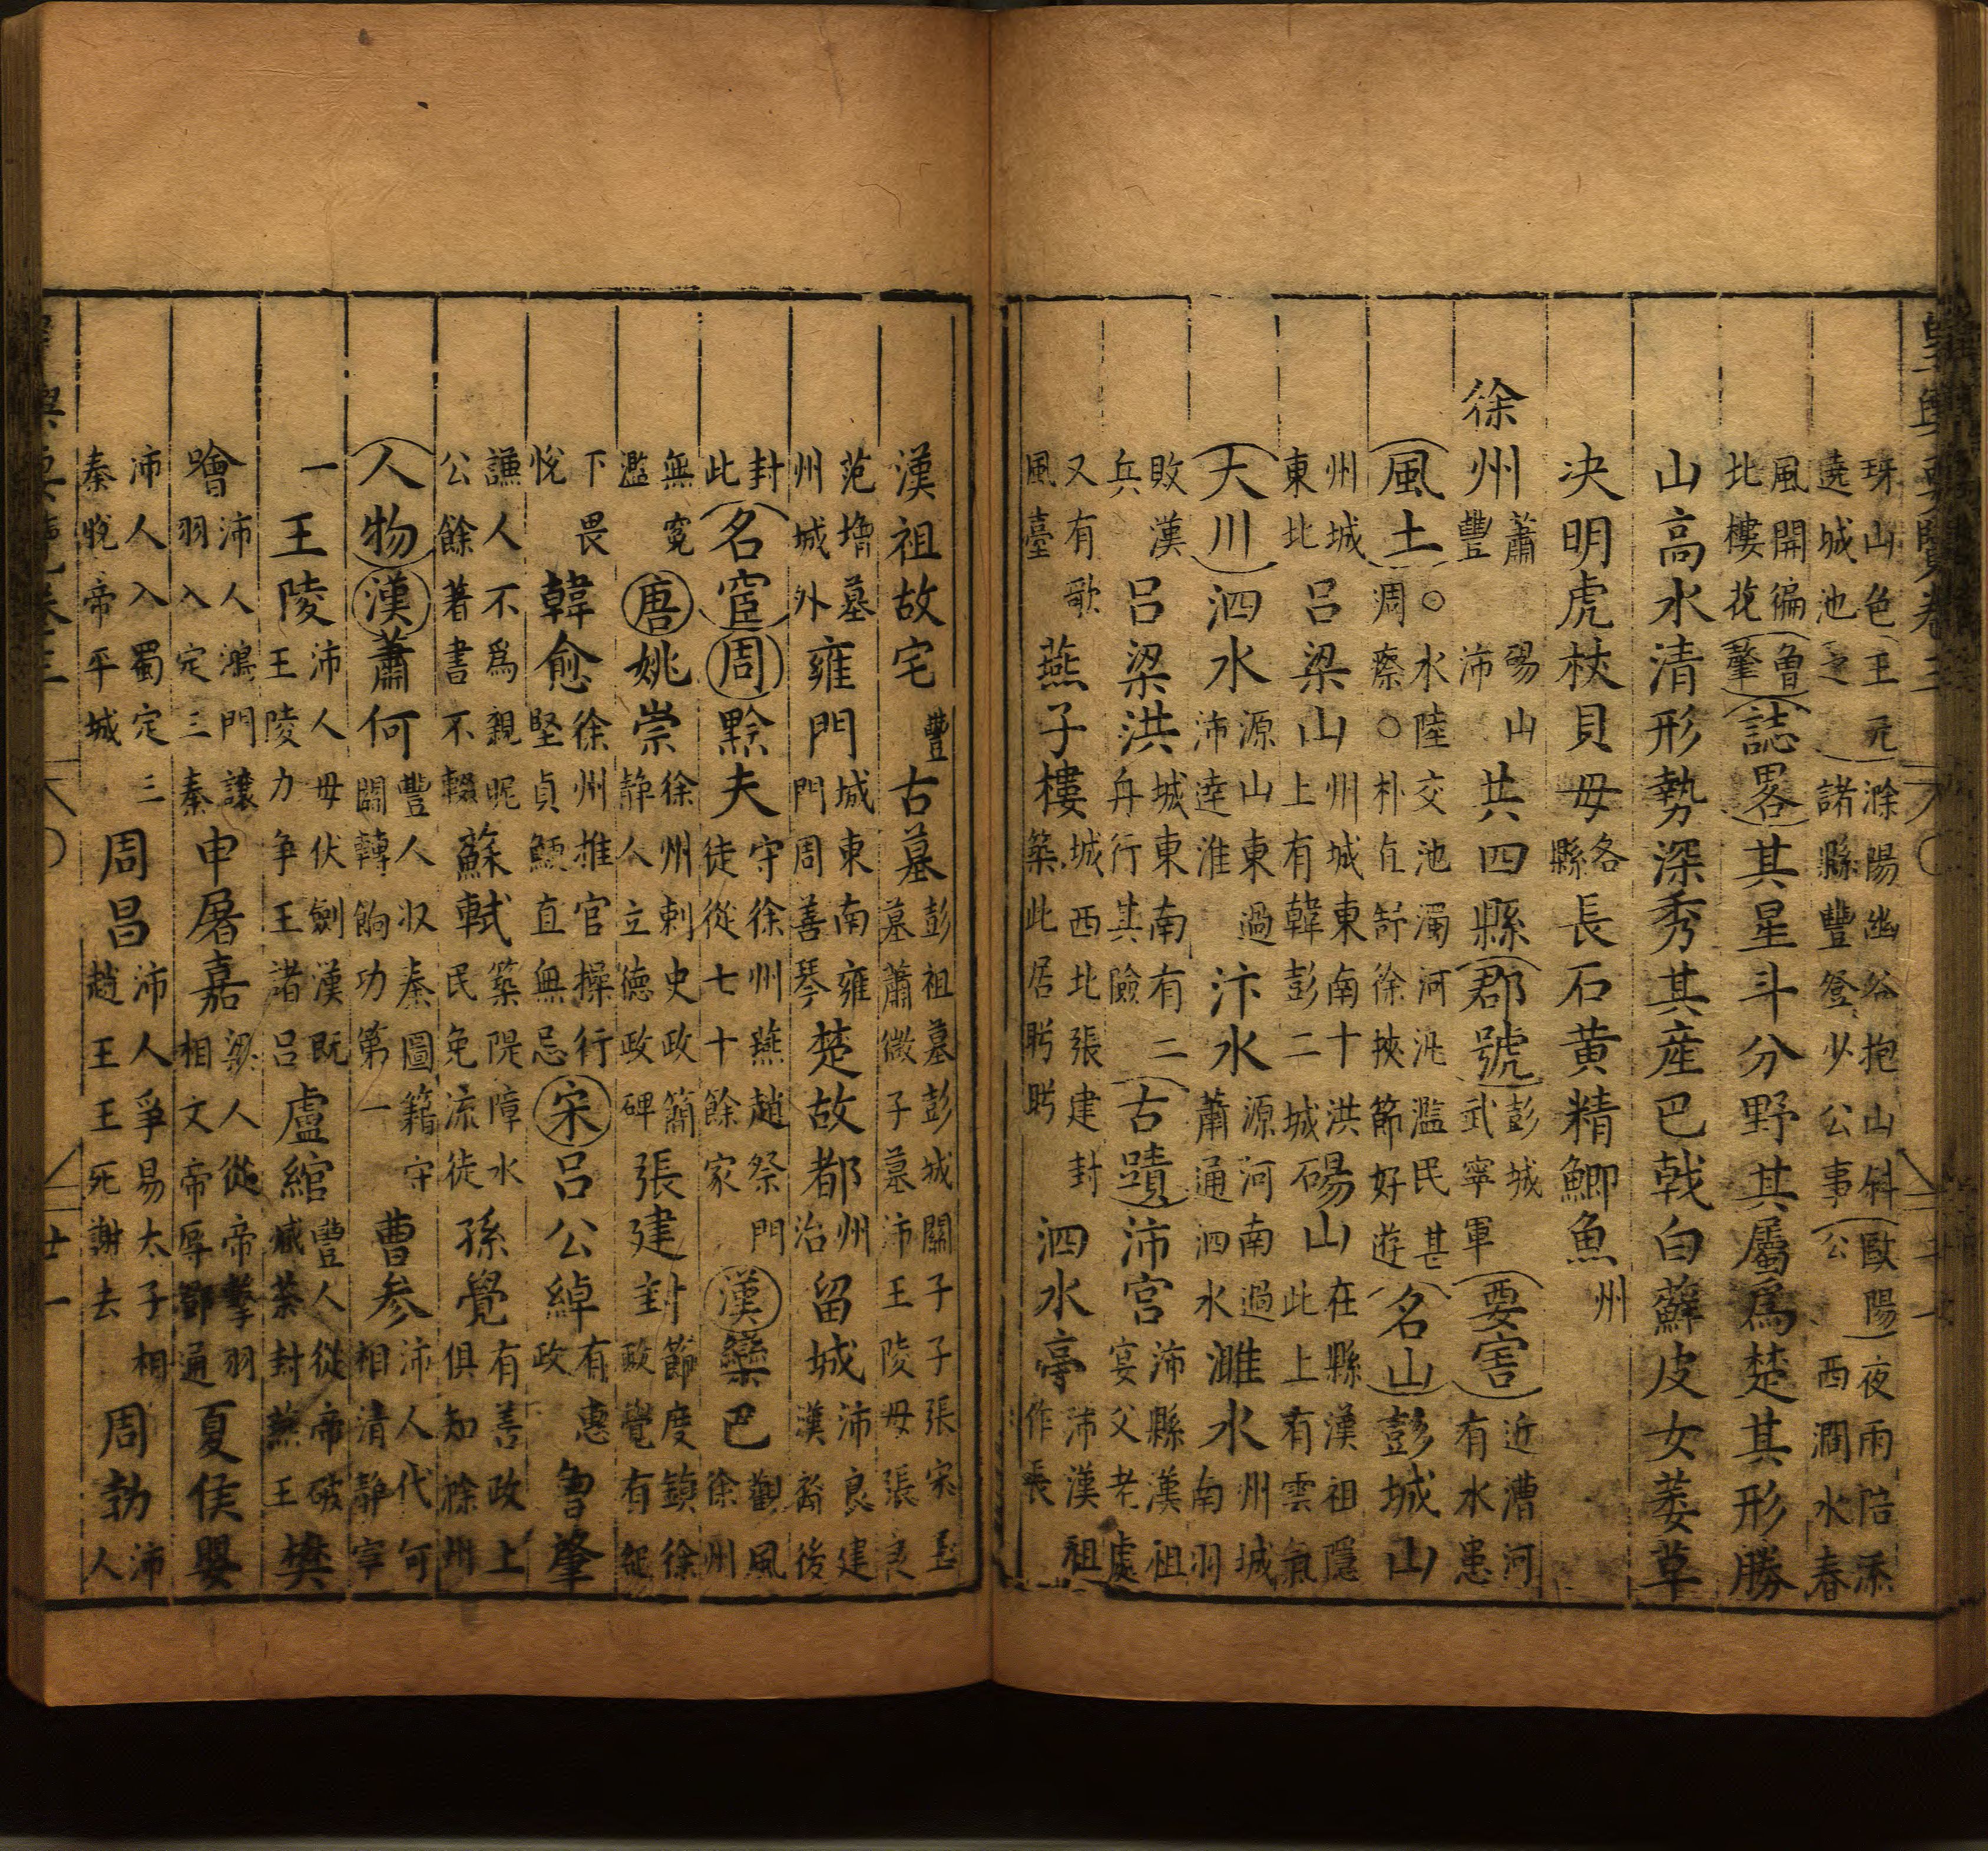 琊山色王元滁陽幽谷抱山斜歐陽夜雨陪添
遶城池之諸縣豐登少公事公西澗水春
風開徧魯誌畧其星斗分野其屬爲楚其形勝
北樓花肇
山高水清形勢深秀其産巴戟白蘚皮女萎草
决明虎杖貝母各縣長石黄精鯽魚州
徐州蕭碭山豐沛共四縣郡號彭城武寧軍要害近漕河有水患
風土○水陸交池濁河汎濫民甚周瘵○朴直舒徐挾節好遊名山彭城山
州城東北呂梁山州城東南十洪上有韓彭二城碭山在縣漢祖隱此上有雲氣
大川泗水源山東過沛達淮汴水源河南過蕭通泗水濉水州城南羽
敗漢兵呂梁洪城東南有二舟行其險古蹟沛宫沛縣漢祖宴父老處
又有歌風臺燕子樓城西北張建封築此居盻盻泗水亭沛漢祖作長
漢祖故宅豐古墓彭祖墓彭城關子子張宋玉墓蕭微子墓沛王陵母張良
范增墓州城外雍門城東南雍門周善琴楚故都州治留城沛良建漢裔後
封此名宦周黔夫守徐州燕趙祭門徒從七十餘家漢欒巴觀風徐州
無寃濫唐姚崇徐州刺史政簡静人立德政碑張建封節度鎮徐政寬有經
下畏悅韓愈徐州推官操行堅貞鯁直無忌宋呂公綽有惠政曾肇
謙人不爲親昵公餘著書不輟蘇軾築隄障水民免流徒孫覺有善政上俱知徐州
人物漢蕭何豐人收秦圖籍守關轉餉功第一曹参沛人代何相清静寧
一王陵沛人母伏劍漢既王陵力争王諸呂盧綰豐人從帝破臧荼封燕王樊
噲沛人鴻門譲羽入定三秦申屠嘉梁人從帝擊羽相文帝辱鄧通夏侯嬰
沛人入蜀定三秦脫帝平城周昌沛人爭易太子相趙王王死謝去周勃沛人